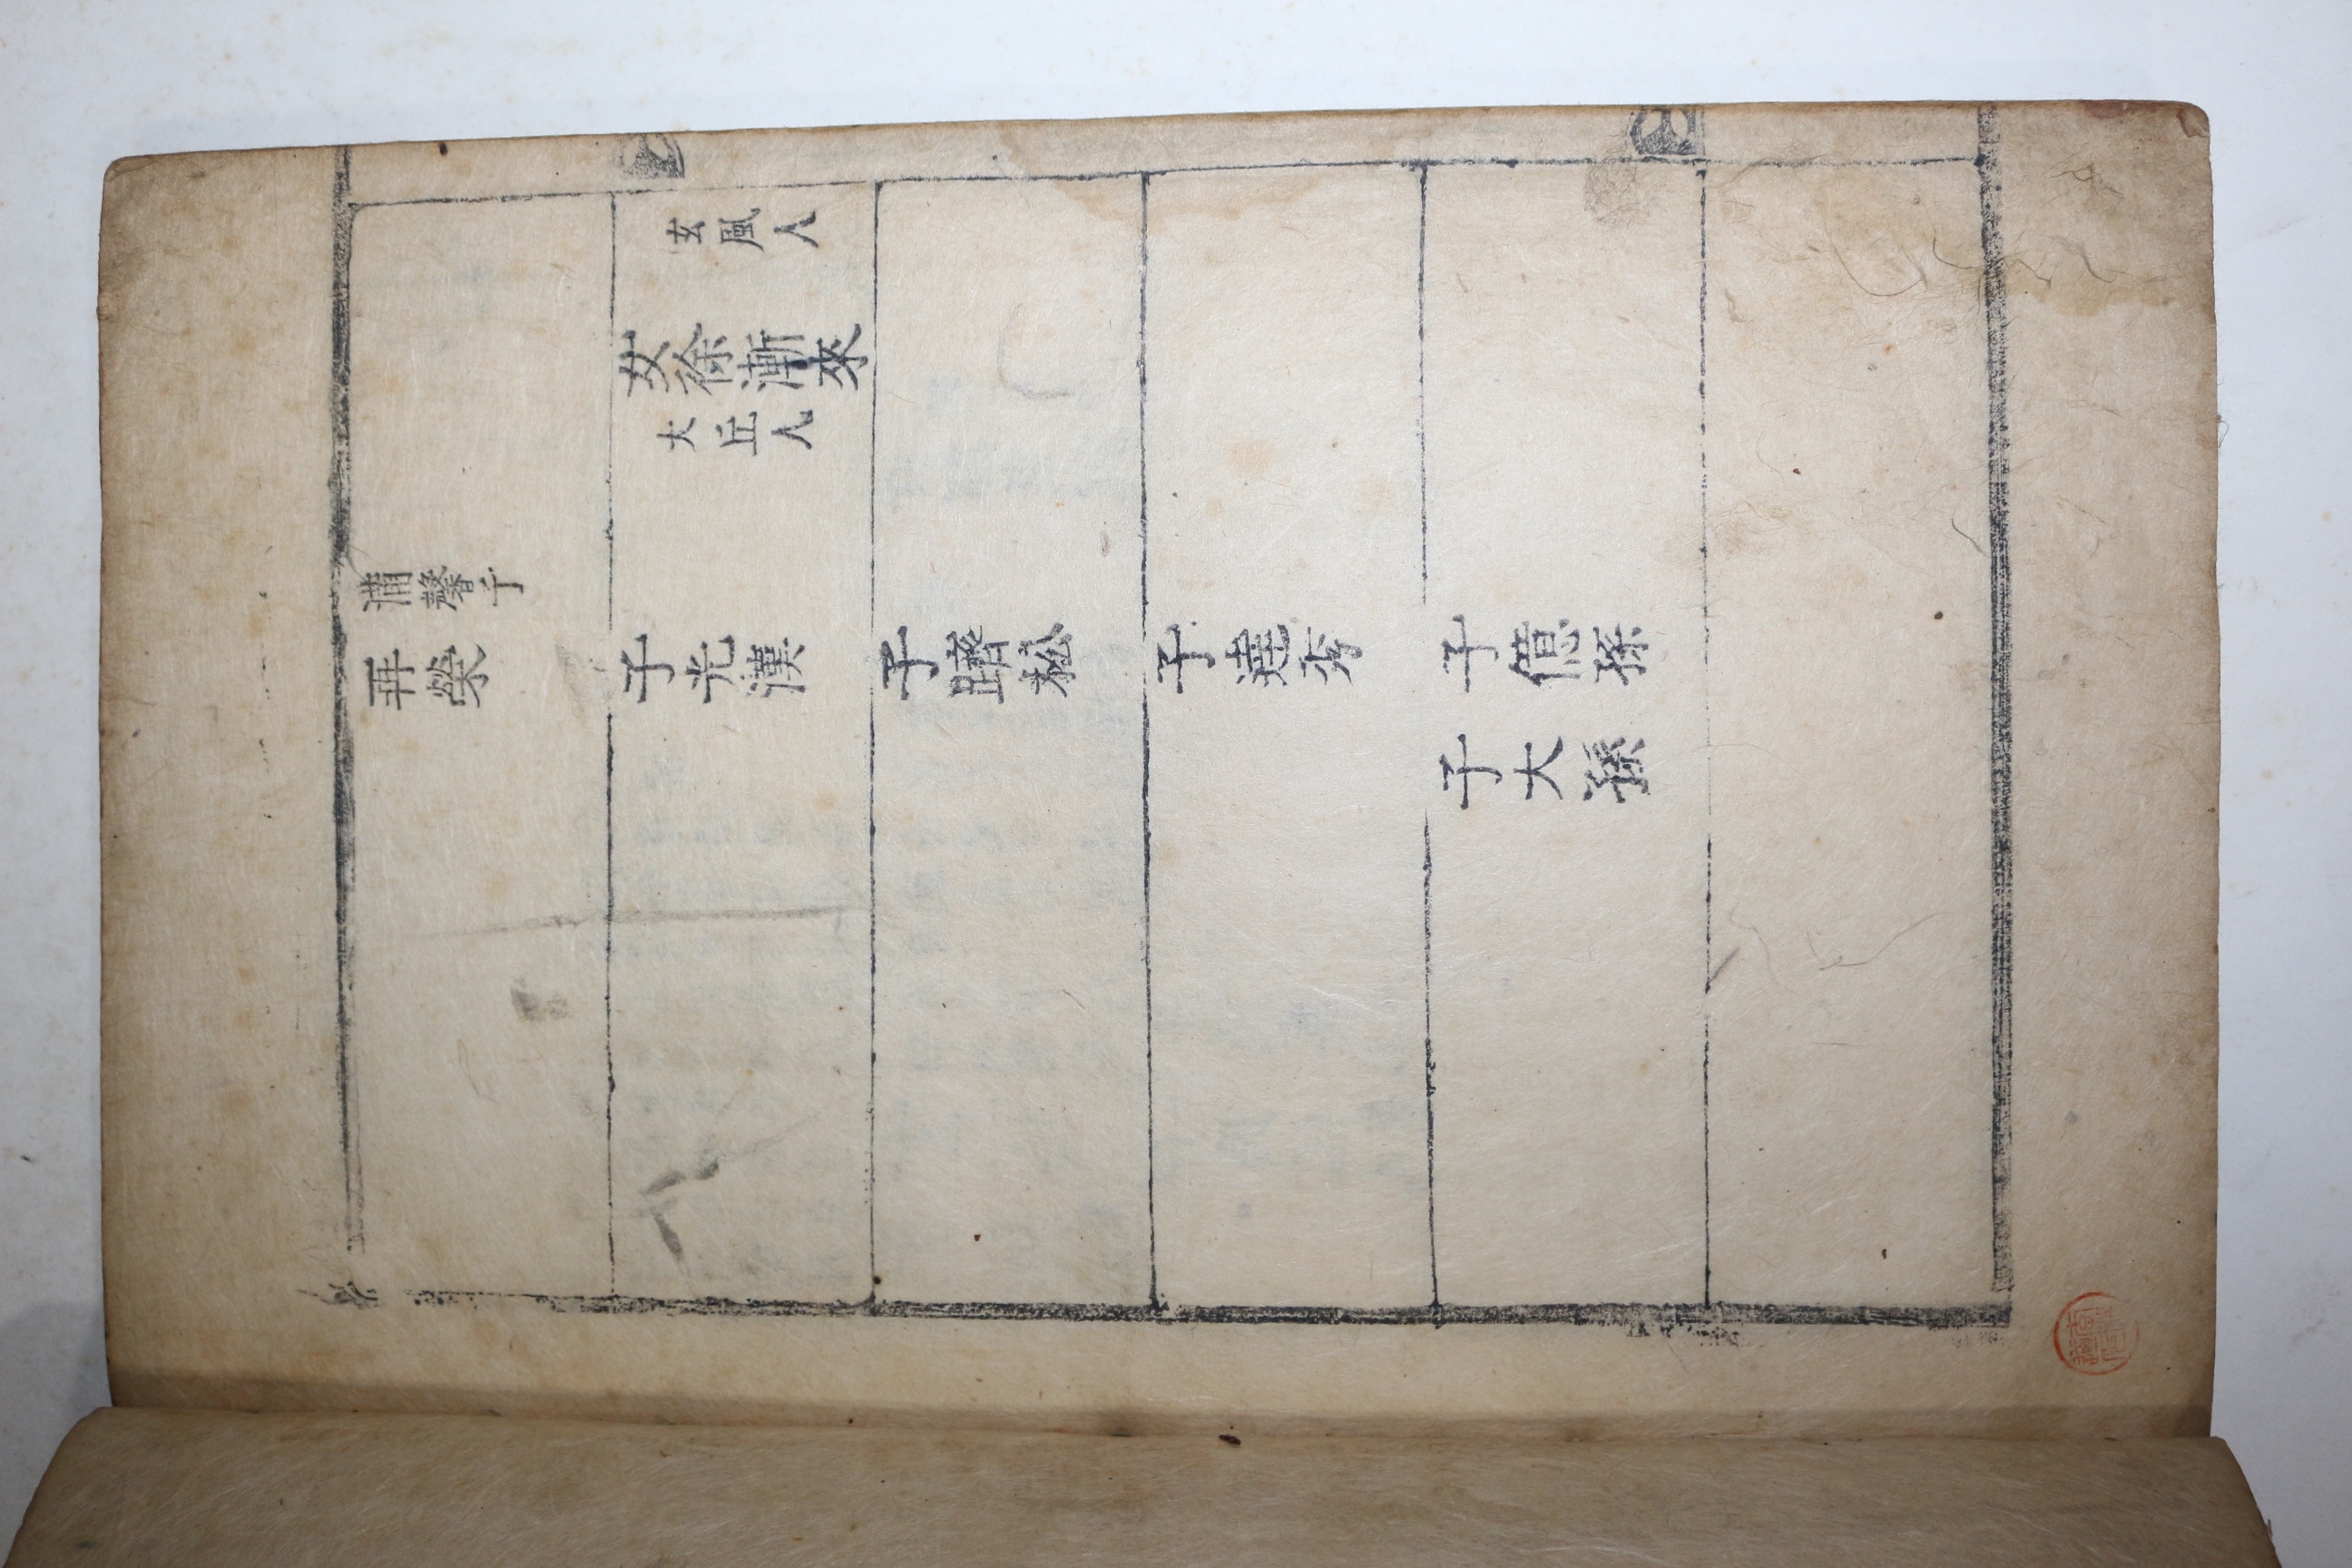 蒲馨子
再榮
玄風人
女徐漸來
大丘人
子光漢
子躋松
子達秀
子億孫
子大孫